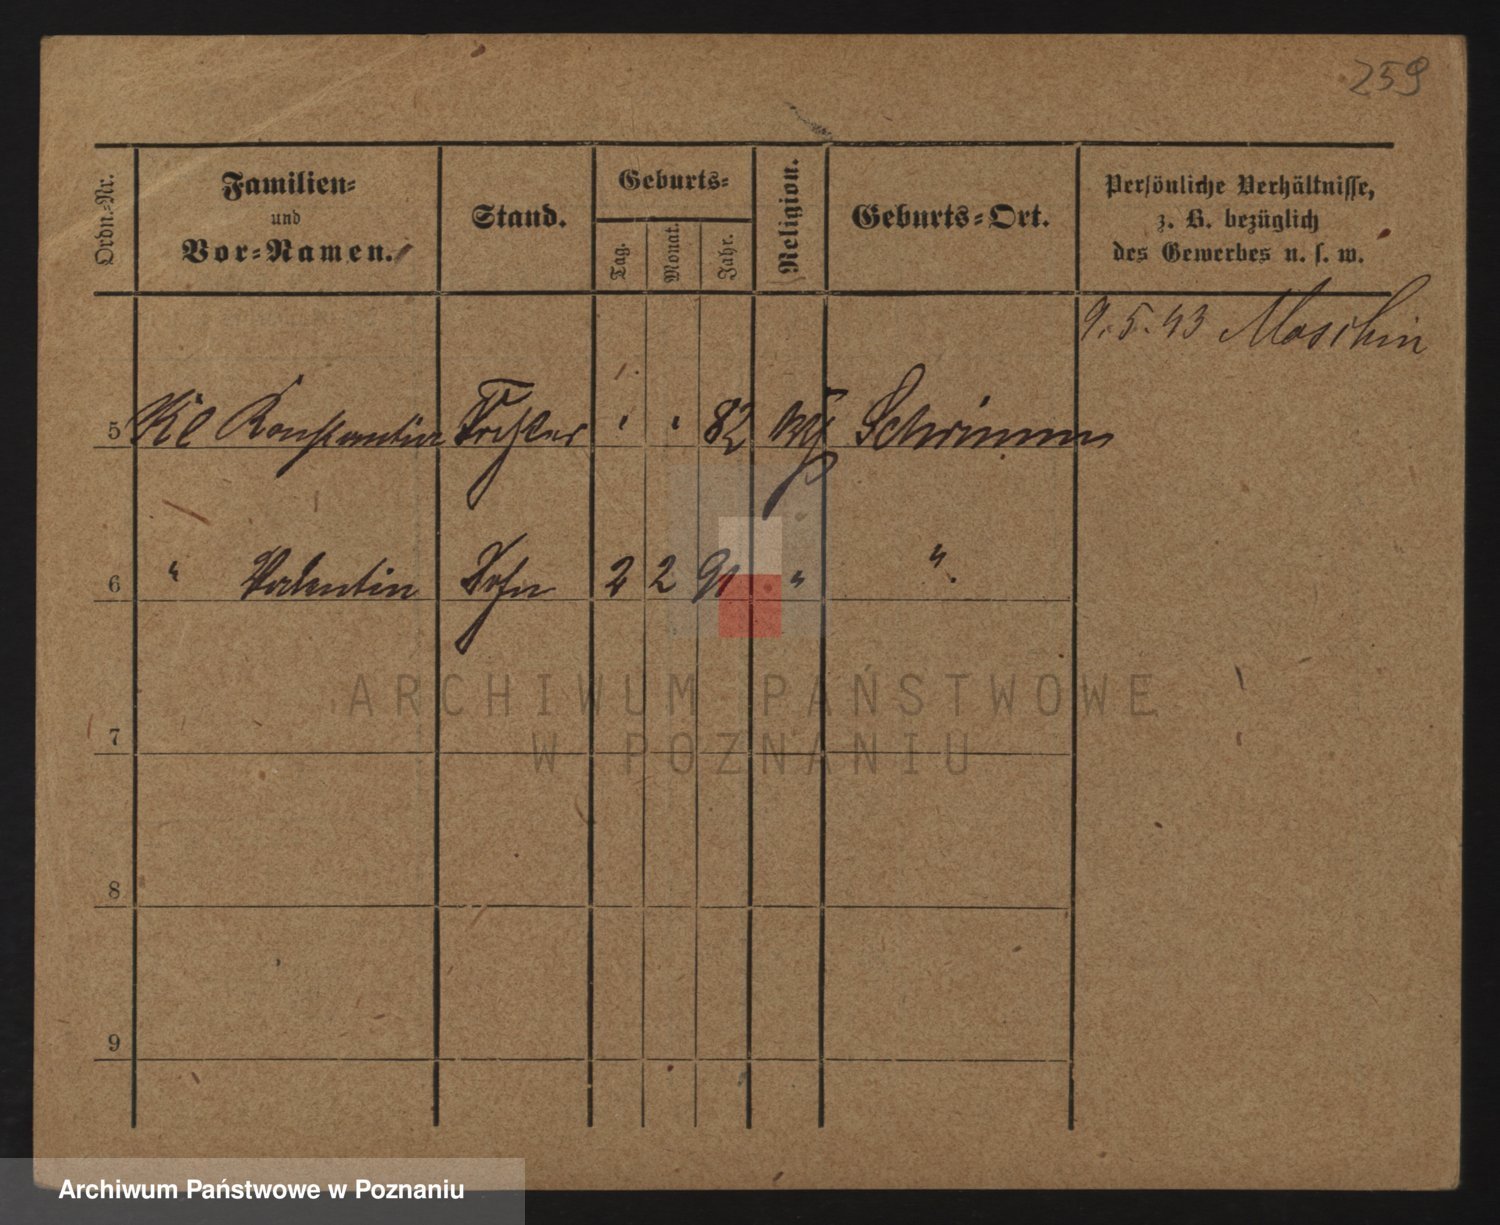 259
Ordn.-Nr.
Familien-
und
Vor-Namen.
Stand.
Geburts-
Tag.
Monat.
Jahr.
Religion.
Geburts-Ort.
Persönliche Verhältnisse,
z. B. bezüglich
des Gewerbes u. s. w.
9. 5. 93 Moschin
5 Konstantin 82 Schrimm
6 " Valentin Sohn 2 2 91 " "
7
8
9
ARCHIWUM PAŃSTWOWE
W POZNANIU
Archiwum Państwowe w Poznaniu